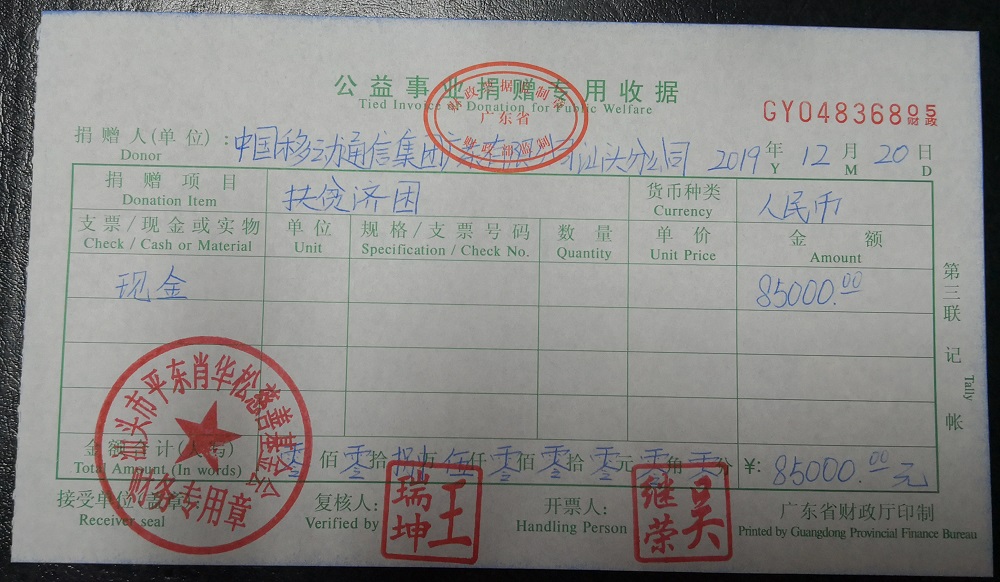 公益事业捐赠专用收据
Tied Invoice of Donation for Public Welfare
财政票据监制章
广东省
财政部监制
GY04836805
财政
捐赠人(单位): 中国移动通信集团广东有限公司汕头分公司 2019 年 12 月 20 日
Donor Y M D
捐赠项目 扶贫济困 货币种类 人民币
Donation Item Currency
支票/现金或实物 单位 规格/支票号码 数量 单价 金额
Check / Cash or Material Unit Specification / Check No. Quantity Unit Price Amount
现金 85000.00
第三联 记帐
Tally
金额合计(大写) 零佰零拾捌万伍仟零佰零拾零元零角零分 ¥: 85000.00元
Total Amount (In words)
接受单位(盖章): 复核人: 开票人: 广东省财政厅印制
Receiver seal Verified by Handling Person Printed by Guangdong Provincial Finance Bureau
汕头市平东肖华松慈善基金会
财务专用章
王瑞坤
吴继荣